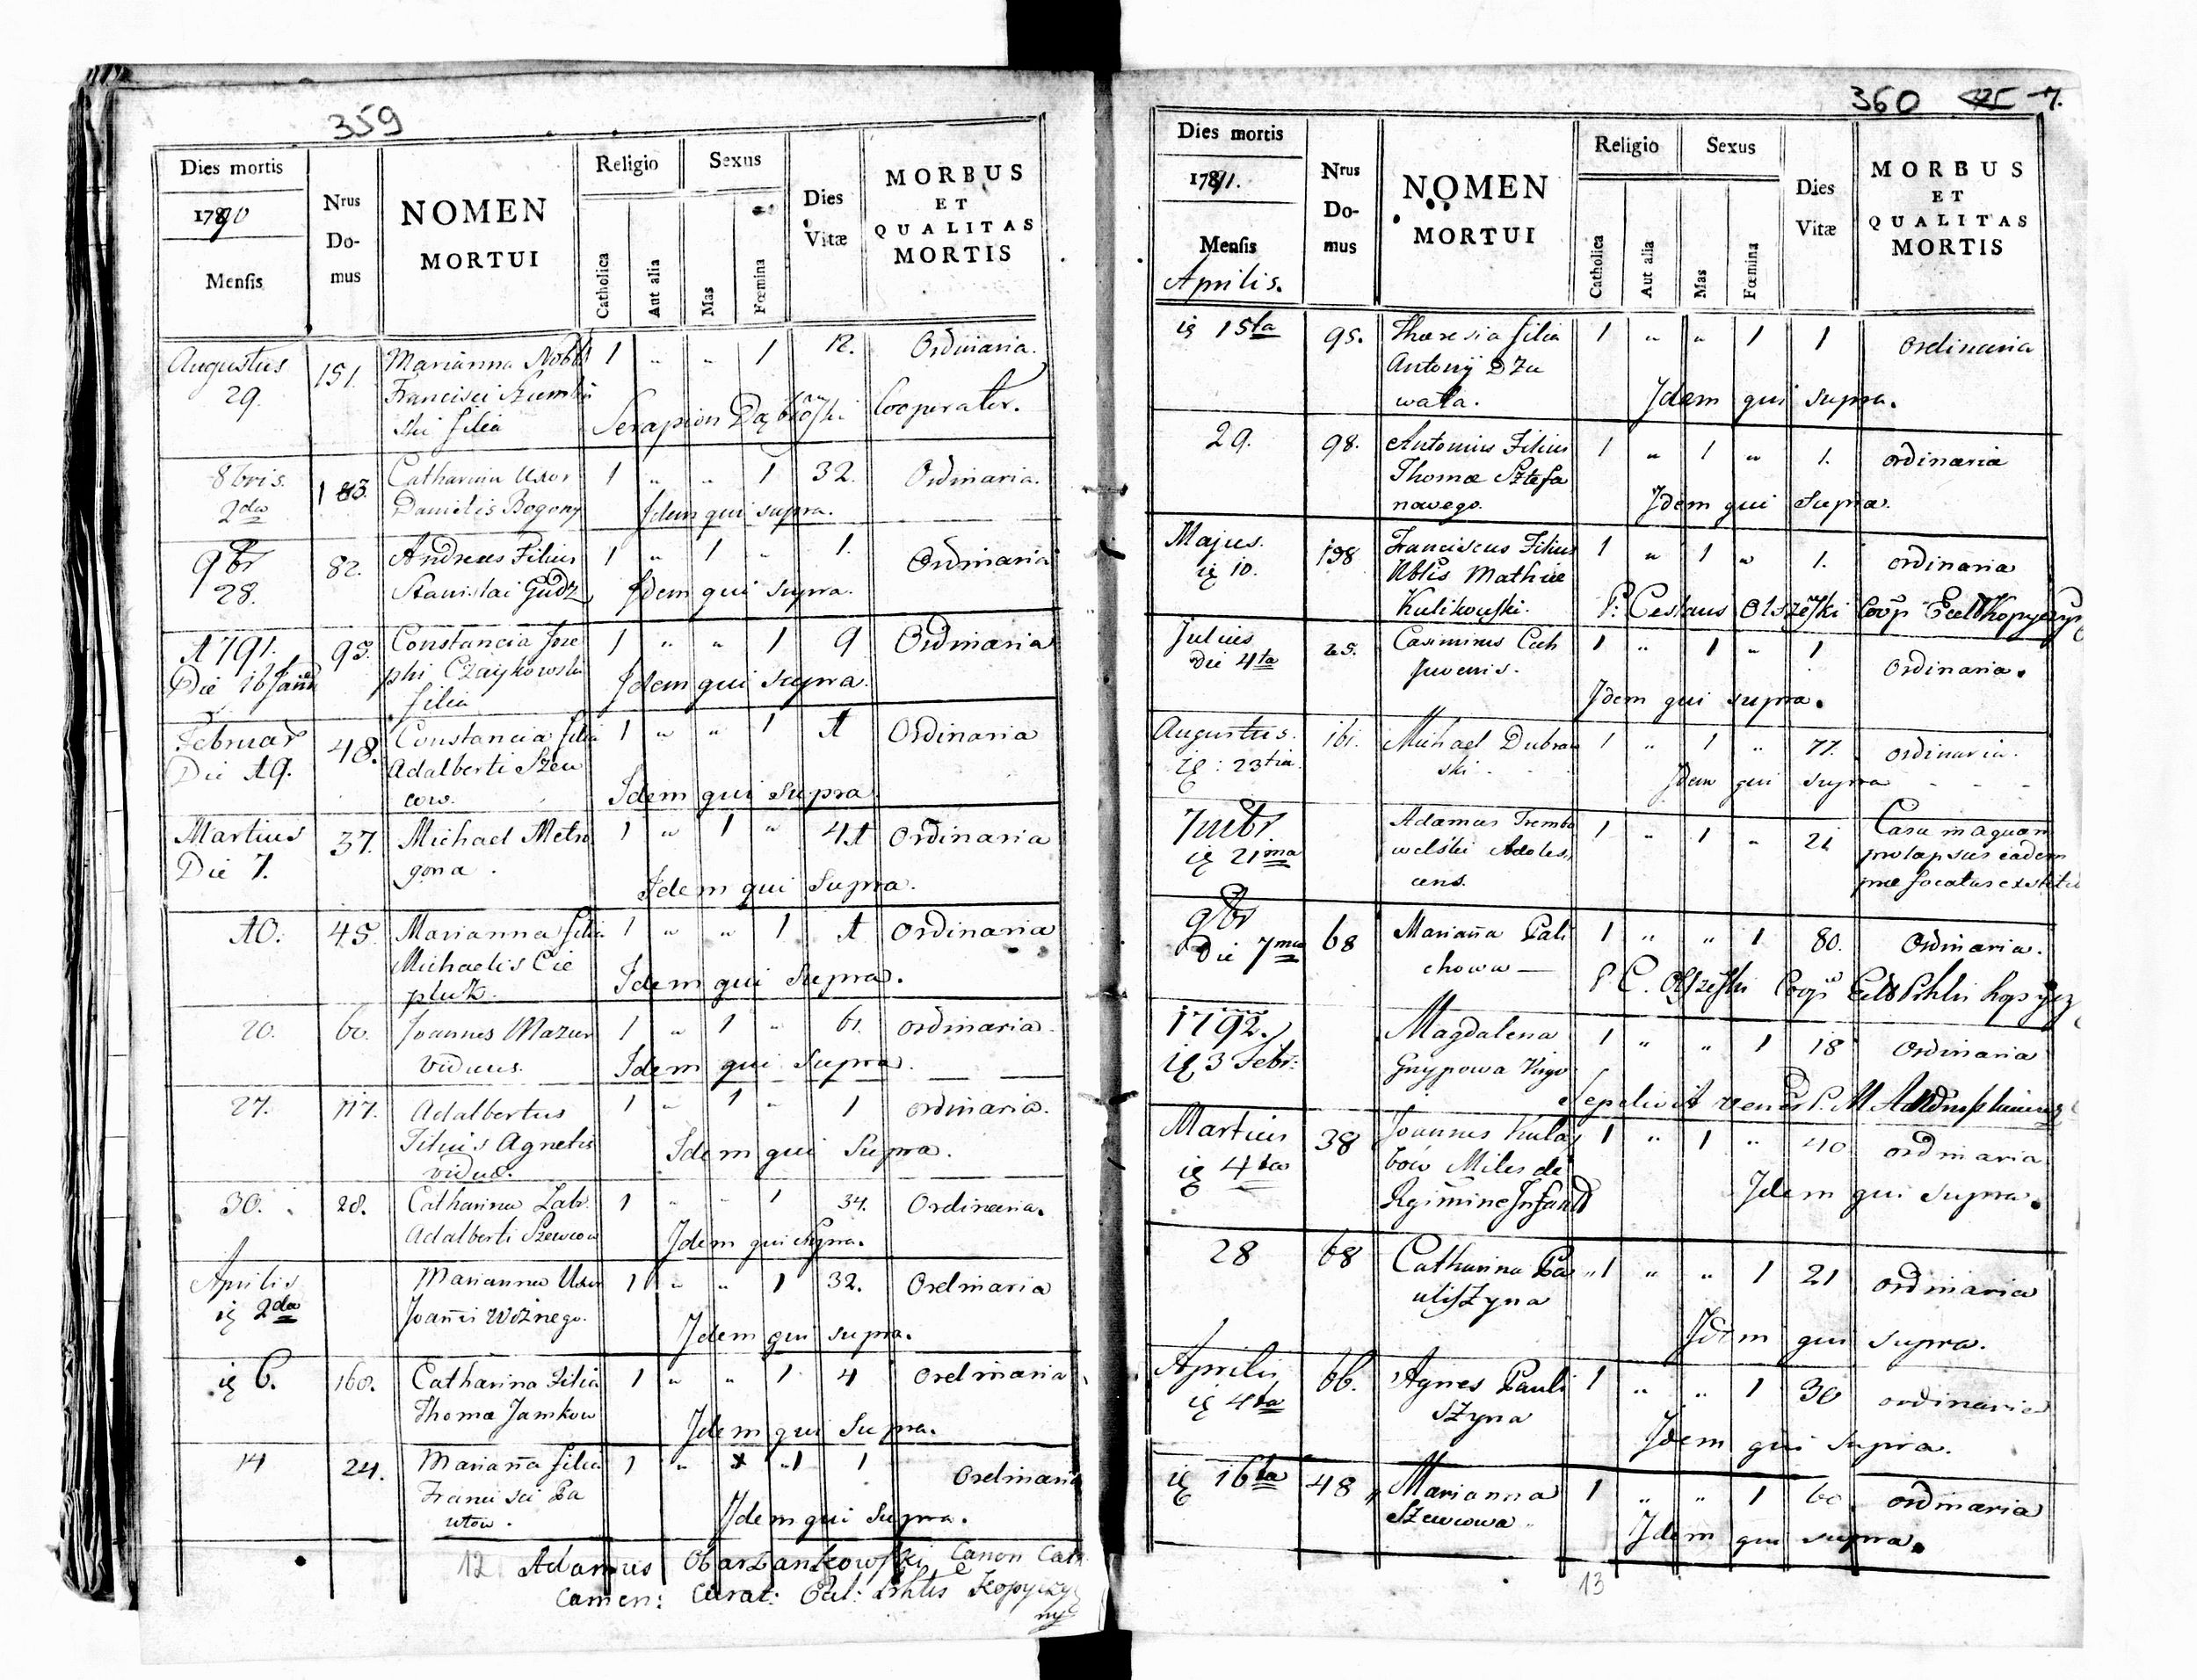 359
Dies mortis
1790
Mensis
Nrus
Do-
mus
NOMEN
MORTUI
Religio
Catholica
Aut alia
Sexus
Mas
Fœmina
Dies
Vitæ
MORBUS
ET
QUALITAS
MORTIS
Augustus
29.
151.
Marianna Nobil
Francisci Szumlin
ski filia
1 " " 1 12. Ordinaria.
Serapion Dąbroski Cooperator.
8bris.
2da
183.
Catharina Uxor
Danielis Bogony
1 " " 1 32. Ordinaria.
Idem qui supra.
9br
28.
82.
Andreas Filius
Stanislai Gudz
1 " 1 " 1. Ordinaria
Idem qui supra.
1791.
Die 16 Janu
95.
Constancia Jose
phi Czaykowski
filia
1 " " 1 9 Ordinaria
Idem qui supra.
Februar
Die 19.
48.
Constancia filia
Adalberti Szew
cow.
1 " " 1 1 Ordinaria
Idem qui supra
Martius
Die 7.
37.
Michael Metro
gona.
1 " 1 " 41 Ordinaria
Idem qui supra.
10.
45.
Marianna filia
Michaelis Cie
pluk.
1 " " 1 1 Ordinaria
Idem qui Supra.
20.
60.
Joannes Mazur
viduus.
1 " 1 " 61. ordinaria.
Idem qui Supra.
27.
117.
Adalbertus
Filius Agnetis
vidua.
1 " 1 " 1 ordinaria.
Idem qui Supra.
30.
28.
Catharina Labr.
Adalberti Szewcow
1 " " 1 34. Ordinaria.
Idem qui supra.
Aprilis
ię 2da
Marianna Uxor
Joañis Woźnego.
1 " " 1 32. Ordinaria
Idem qui supra.
ię 6.
160.
Catharina Filia
Thoma Jamkow
1 " " 1 4 Ordinaria
Idem qui Supra.
14
24.
Mariaña filia
Francisci Pa
włow.
1 " " 1 1 Ordinaria
Idem qui Supra.
12 Adamus Obarzankowski Canon Cath
Camen: Curat: Eccl: Prhlis Kopyczy
ny
360
7.
Dies mortis
1791.
Mensis
Aprilis.
Nrus
Do-
mus
NOMEN
MORTUI
Religio
Catholica
Aut alia
Sexus
Mas
Fœmina
Dies
Vitæ
MORBUS
ET
QUALITAS
MORTIS
ię 15ta
95.
Theresia filia
Antonij Dzu
wała.
1 " " 1 1 Ordinaria
Idem qui supra.
29.
98.
Antonius Filius
Thomæ Sztefa
nowego.
1 " 1 " 1. ordinaria
Idem qui Supra.
Majus.
ię 10.
198
Franciscus Filius
Nblis Mathiæ
Kulikowski.
1 " 1 " 1. ordinaria
P: Ceslaus Olszeski Coop
Julius
Die 4ta
25.
Casimirus Cich
Juvenis.
1 " 1 " 1 Ordinaria.
Idem qui supra.
Augustus.
ię: 23tia
161.
Michael Dubrow
ski
1 " 1 " 77. ordinaria.
Idem qui supra
7mbr
ię 21ma
Adamus Trembo
welski Adoles
cens.
1 " 1 " 21
Casu in aquam
prolapsus eadem
præfocatus extitit
9br
Die 7ma
68
Mariaña Pali
chowa
1 " " 1 80. Ordinaria.
P C. Olszeski Coop
1792.
ię 3 Febr:
Magdalena
Gnypowa Virgo
1 " " 1 18 Ordinaria
Sepelivit
Martius
ię 4ta
38
Joannes Kulaj
bow Miles de
Rgimine Infant
1 " 1 " 40. ordinaria
Idem qui supra.
28
68
Catharina Pa
uliszyna
" 1 " " 1 21 ordinaria
Idem qui supra.
Aprilis
ię 4ta
66.
Agnes Pauli
szyna
1 " " 1 30 ordinaria
Idem qui supra.
ię 16ta
48
Marianna
Szewcowa
1 " " 1 60 ordinaria
Idem qui supra.
13